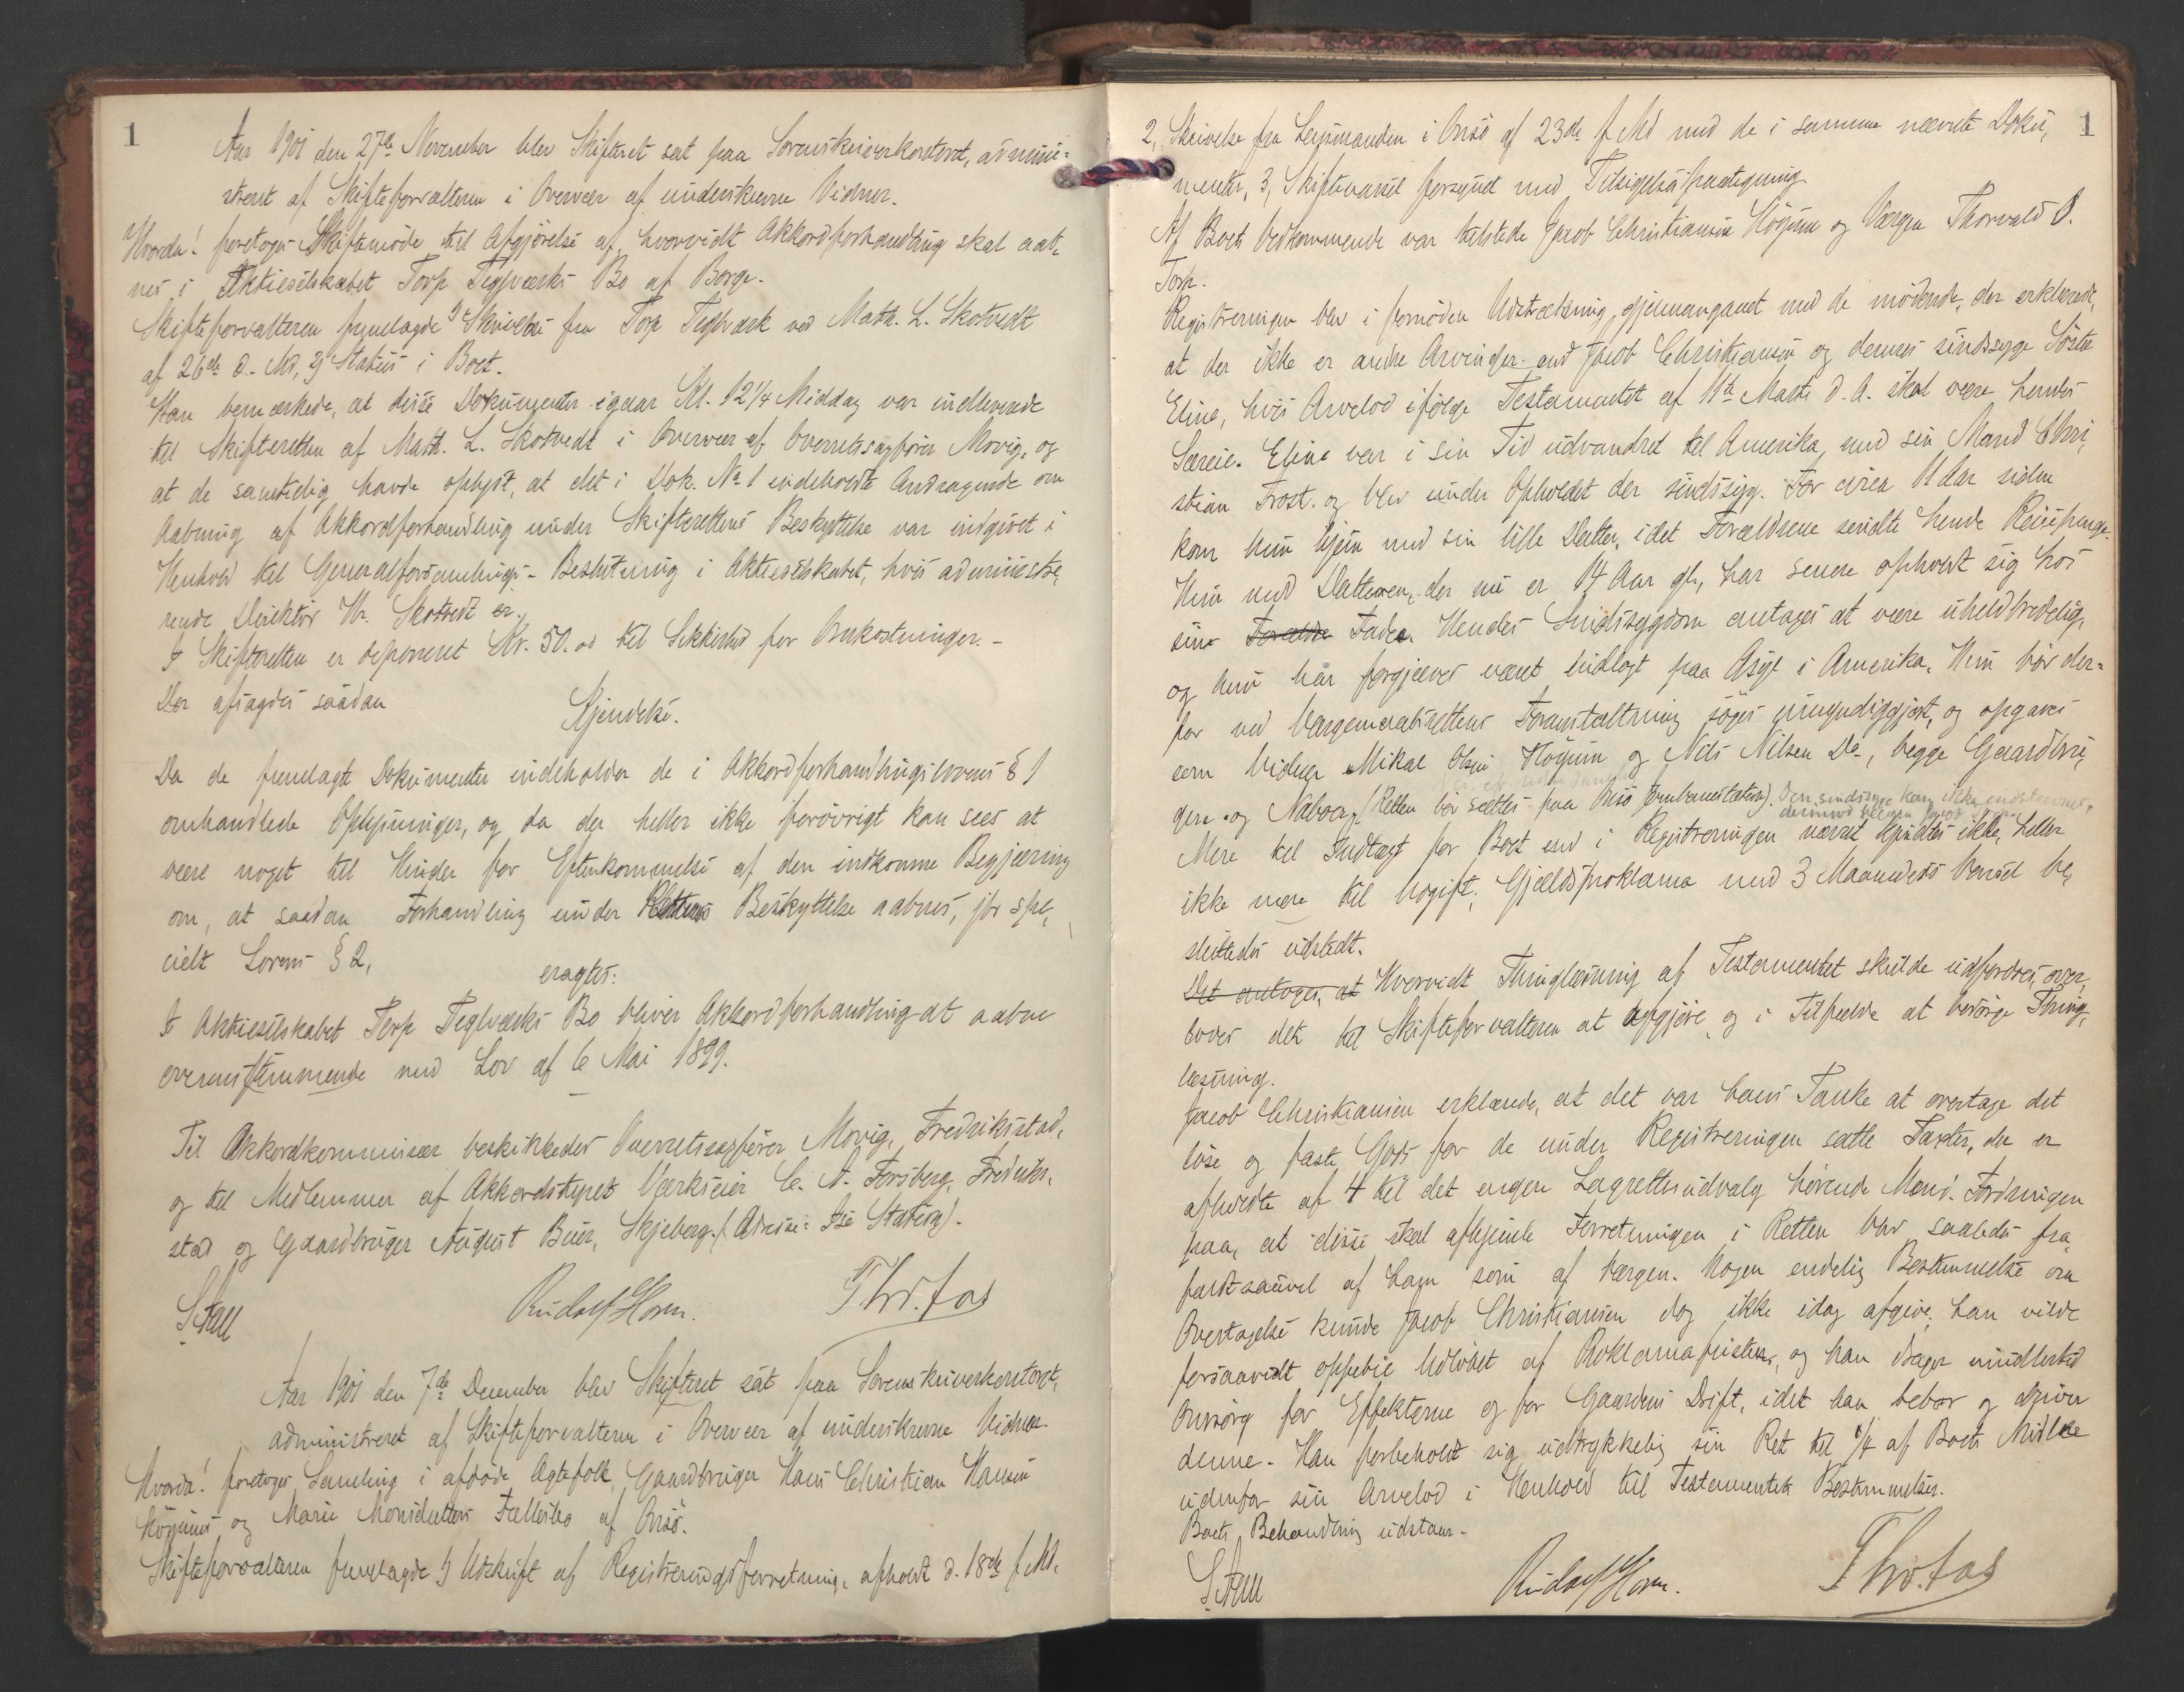 1
Aar 1901 den 27de November blev Skifteret sat paa Sorenskriverkontoret, admini-
streret af Skifteforvalteren i Overvær af underskrevne Vidner.
Hvorda! foretoges Skiftemøde til Afgjørelse af, hvorvidt Akkordforhandling skal aab-
nes i Aktieselskabet Torp Teglværks Bo af Borge.
Skifteforvalteren fremlagde 1, Skrivelse fra Torp Teglværk ved Math. L. Skotvedt
af 26de d. Md, 2, Status i Boet.
Han bemærkede, at disse Dokumenter igaar Kl. 12 1/4 Middag var indleverede
til Skifteretten af Math. L. Skotvedt i Overvær af Overretssagfører Movig, og
at de samtidig havde oplyst, at det i Dok. No 1 indeholdte Andragende om
Aabning af Akkordforhandling under Skifterettens Beskyttelse var indgivet i
Henhold til Generalforsamlings-Beslutning i Aktieselskabet, hvis administre,
rende Direktør Hr. Skotvedt er.
I Skifteretten er deponeret Kr. 50.00 til Sikkerhed for Omkostninger. -
Der afsagdes saadan
Kjendelse.
Da de fremlagte Dokumenter indeholder de i Akkordforhandlingslovens § 1
omhandlede Oplysninger, og da der heller ikke forøvrigt kan sees at
være noget til Hinder for Efterkommelse af den indkomne Begjæring
om, at saadan Forhandling under Rettens Beskyttelse aabnes, jfr spe,
cielt Lovens § 2,
eragtes:
I Aktieselskabet Torp Teglværks Bo bliver Akkordforhandling at aabne
overensstemmende med Lov af 6 Mai 1899.
Til Akkordkommissær beskikkedes Overretssagfører Movig, Fredrikstad,
og til Medlemmer af Akkordstyret Værkseier C. A. Forsberg, Fredrik,
stad og Gaardbruger August Buer, Skjeberg. (Adresse: Ise Station).
Stall Rudolf Horn. Thv. Fos
Aar 1901 den 7de December blev Skifteret sat paa Sorenskriverkontoret,
administreret af Skifteforvalteren i Overvær af underskrevne Vidner.
Hvorda! foretoges Samling i afdøde Ægtefolk, Gaardbruger Hans Christian Hansen
Høgnæs og Marie Monsdatters Fællesbo af Onsø.
Skifteforvalteren fremlagde 1, Udskrift af Registreringsforretning, afholdt d. 18de f. Md.
1
2, Skrivelse fra Lensmanden i Onsø af 23de f. Md med de i samme nævnte Doku,
menter, 3, Skiftevarsel forsynet med Tilsigelsespaategning.
Af Boets Vedkommende var tilstede Jacob Christiansen Høgnæs og Værgen Thorvald O.
Torp.
Registreringen blev i fornøden Udstrækning gjennemgaaet med de mødende, der erklærede,
at der ikke er andre Arvinger end Jacob Christiansen og dennes sindssyge Søster
Eline, hvis Arvelod ifølge Testamentet af 11te Marts d. A. skal være hendes
Særeie. Eline var i sin Tid udvandret til Amerika, med sin Mand Chri,
stian Frost. og blev under Opholdet der sindssyg. For circa 11 Aar siden
kom hun hjem med sin lille Datter, idet Forældrene sendte hende Reisepenge.
Hun med Datteren, der nu er 14 Aar gl., har senere opholdt sig hos
sin Forældre Fader. Hendes Sindssygdom antages at være uhelbredelig,
og hun har forgjæves været indlagt paa Asyl i Amerika. Hun bør der-
for ved Vergemaalsrettens Foranstaltning søges umyndiggjort, og opgaves
som Vidner Mikal Olsen Høgnæs og Nils Nilsen Do, begge Gaardbru,
gere og Naboer. (Retten bør sættes paa Onsø Jernbanestation). Den sindssyge kan ikke indstevnes,
Mere til Indtægt for Boet end i Registreringen nævnt kjendtes ikke, heller
ikke mere til Udgift. Gjældsproklama med 3 Maaneders Varsel be,
sluttedes udstedt.
Det antoges, at Hvorvidt Thinglæsning af Testamentet skulde udfordres, over,
lodes det til Skifteforvalteren at afgjøre og i Tilfælde at besørge Thing,
læsning.
Jacob Christiansen erklærede, at det var hans Tanke at overtage det
løse og faste Gods for de under Registreringen satte Taxter, der er
afholdte af 4 til det engere Lagretteudvalg hørende Mænd. Fordringen
paa, at disse skal afhjemle Forretningen i Retten blev saaledes fra,
faldt saavel af ham som af Værgen. Nogen endelig Bestemmelse om
Overtagelse kunde Jacob Christiansen dog ikke idag afgive; han vilde
forsaavidt oppebie Udløbet af Proklamafristen, og han drager imidlertid
Omsorg for Effekterne og for Gaardens Drift, idet han bebor og driver
denne. Han forbeholdt sig udtrykkelig sin Ret til 1/4 af Boets Midler
udenfor sin Arvelod i Henhold til Testamentets Bestemmelser.
Boets Behandling udstaar.
Stall Rudolf Horn. Thv. Fos